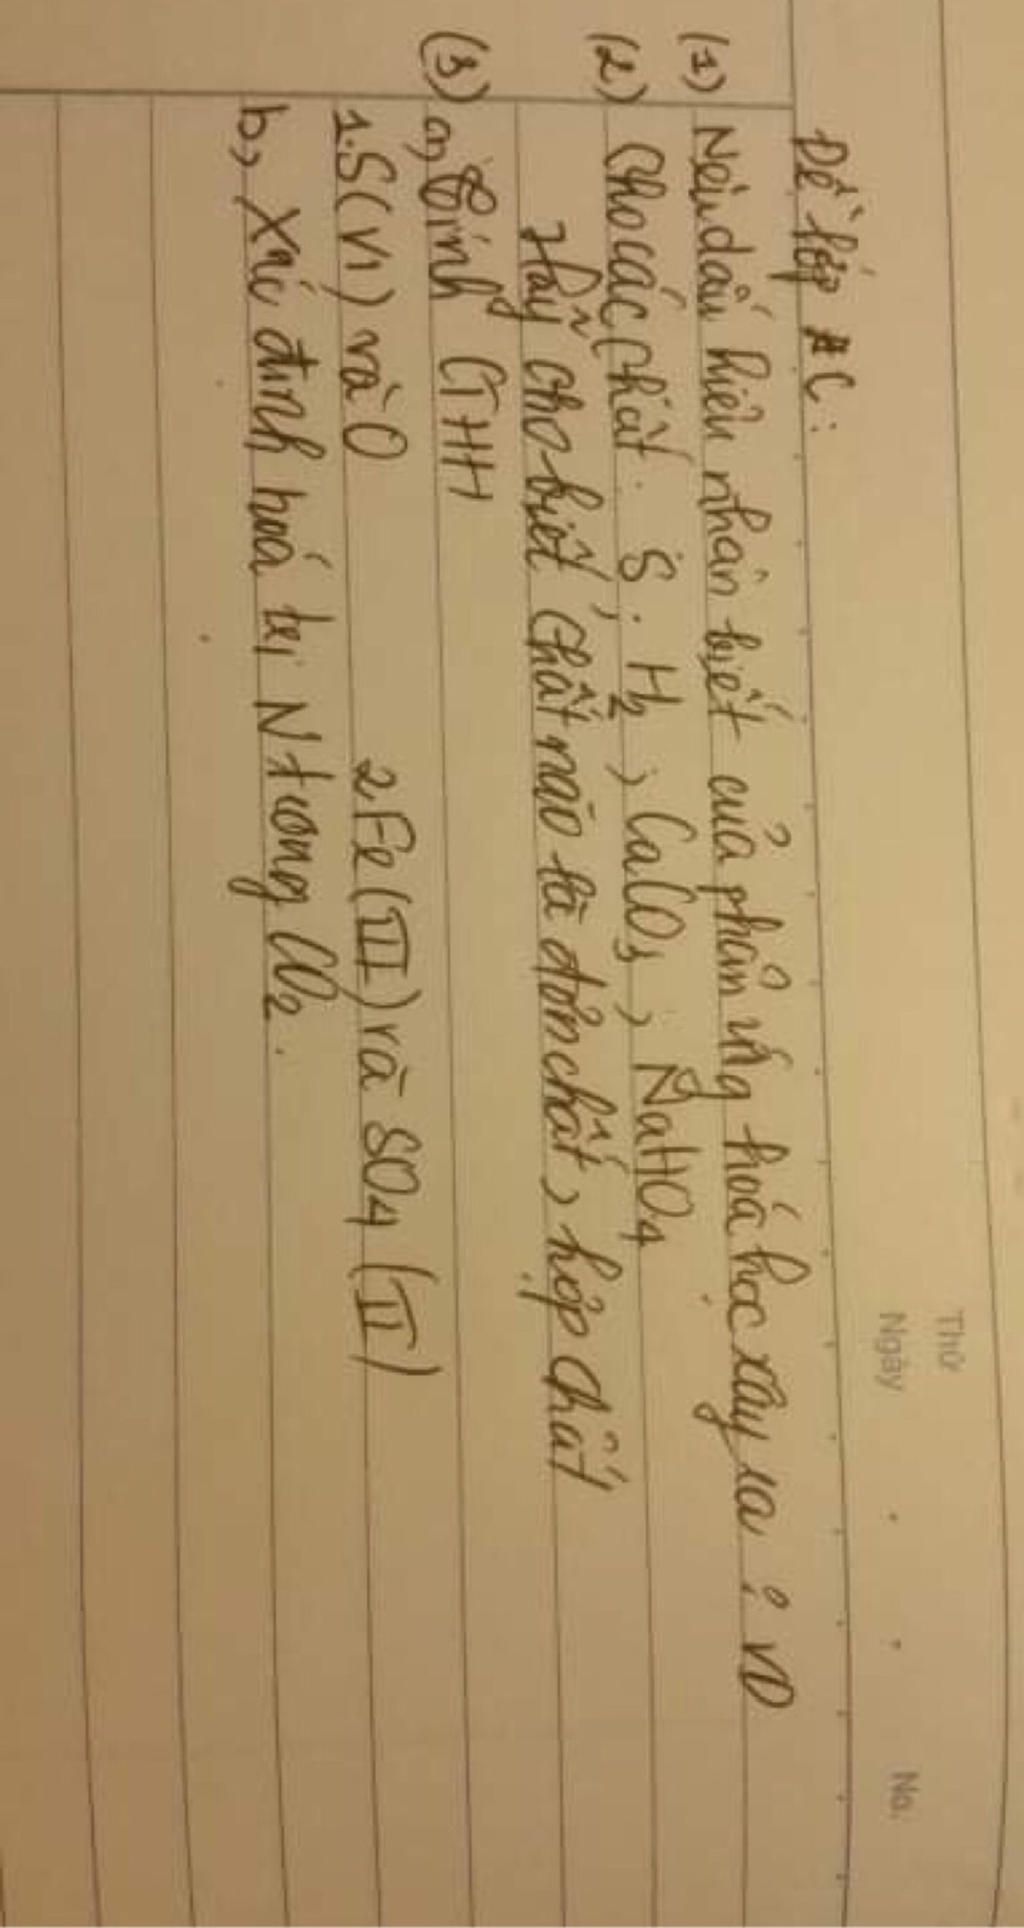 Thứ
Ngày
No.
Đề lớp AC:
(1) Nêu dấu hiệu nhận biết của phản ứng hoá học xảy ra ? VD
(2) Cho các chất: S; H2, CaCO3, NaHO4
Hãy cho biết chất nào là đơn chất, hợp chất
(3) a, Tính CTHH
1. S(VI) và O 2. Fe(III) và SO4 (II)
b, Xác định hoá trị N trong CO2.